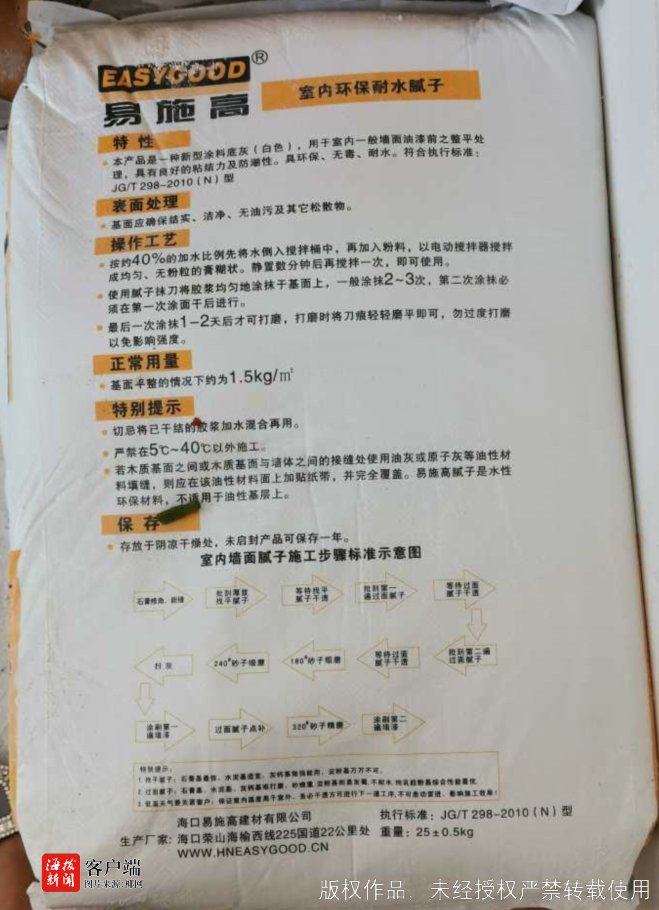 EASYGOOD®
易施高
室内环保耐水腻子
特 性
本产品是一种新型涂料底灰（白色），用于室内一般墙面油漆前之整平处
理，具有良好的粘结力及防潮性。具环保、无毒、耐水。符合执行标准：
JG/T 298-2010（N）型
表面处理
基面应确保结实、洁净、无油污及其它松散物。
操作工艺
按约40%的加水比例先将水倒入搅拌桶中，再加入粉料，以电动搅拌器搅拌
成均匀、无粉粒的膏糊状。静置数分钟后再搅拌一次，即可使用。
使用腻子抹刀将胶浆均匀地涂抹于基面上，一般涂抹2~3次，第二次涂抹必
须在第一次涂面干后进行。
最后一次涂抹1-2天后才可打磨，打磨时将刀痕轻轻磨平即可，勿过度打磨
以免影响强度。
正常用量
基面平整的情况下约为1.5kg/㎡
特别提示
切忌将已干结的胶浆加水混合再用。
严禁在5℃~40℃以外施工。
若木质基面之间或木质基面与墙体之间的接缝处使用油灰或原子灰等油性材
料填缝，则应在该油性材料面上加贴纸带，并完全覆盖。易施高腻子是水性
环保材料，不适用于油性基层上。
保 存
存放于阴凉干燥处，未启封产品可保存一年。
室内墙面腻子施工步骤标准示意图
石膏修角、嵌缝
批刮厚浆
找平腻子
等待找平
腻子干透
批刮第一
遍过面腻子
等待过面
腻子干透
扫 灰
240#砂子细磨
180#砂子粗磨
等待过面
腻子干透
批刮第二遍
过面腻子
涂刷第一
遍墙漆
过面腻子点补
320#砂子精磨
涂刷第二
遍墙漆
特别提示：
海口易施高建材有限公司
执行标准：JG/T 298-2010（N）型
生产厂家：海口荣山海榆西线225国道22公里处
重量：25±0.5kg
WWW.HNEASYGOOD.CN
海拔新闻
客户端
图片来源:椰网
版权作品，未经授权严禁转载使用